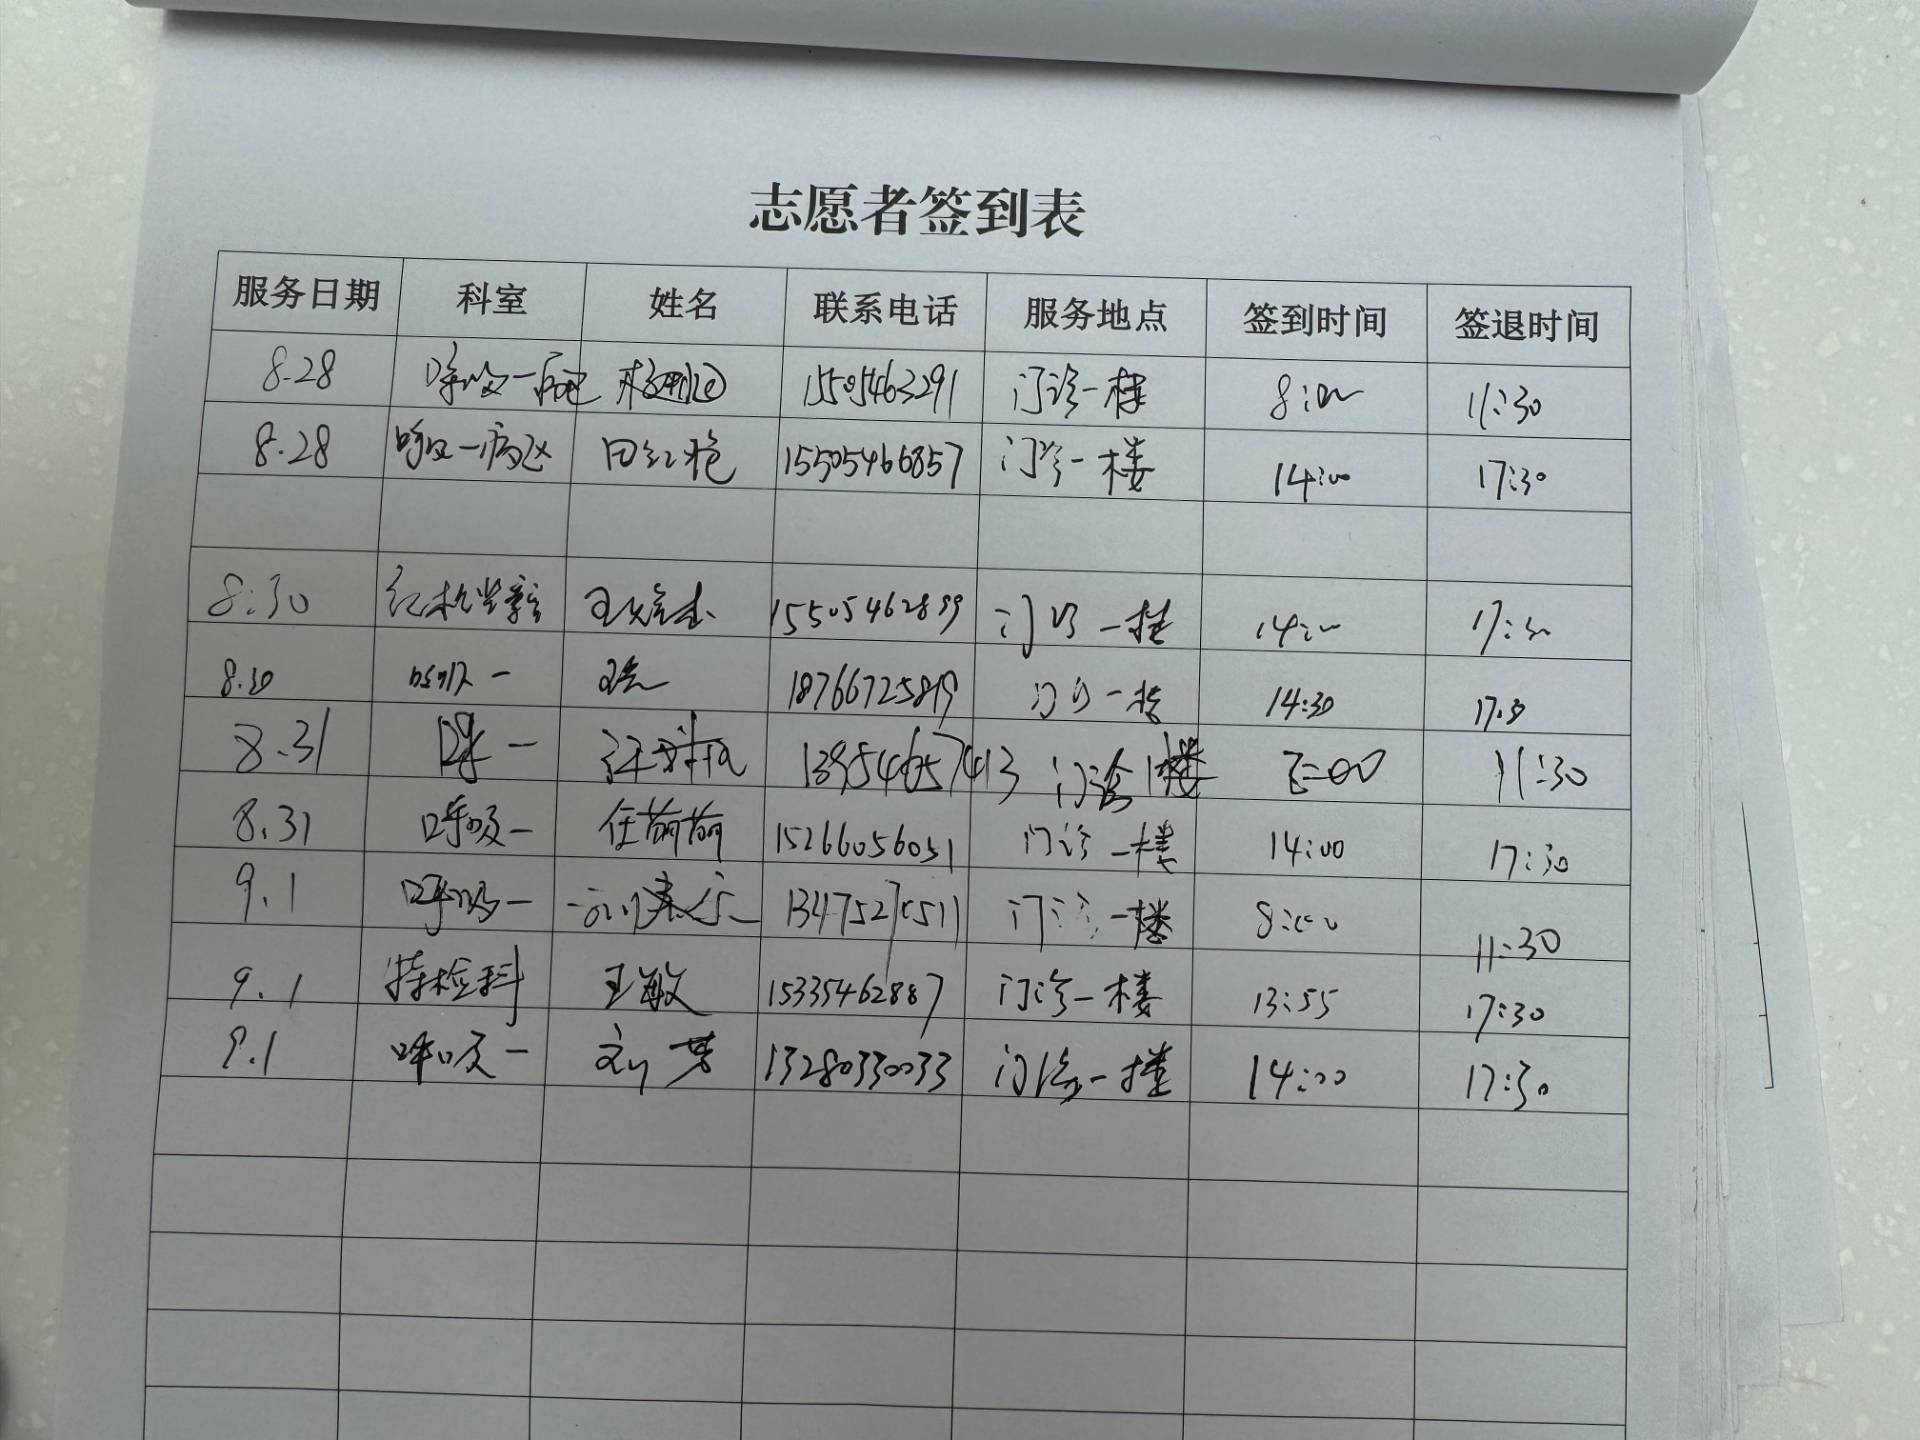 志愿者签到表
服务日期 科室 姓名 联系电话 服务地点 签到时间 签退时间
8.28 呼吸一病区 15505463291 门诊一楼 8:00 11:30
8.28 呼吸一病区 田红艳 15505466857 门诊一楼 14:00 17:30
8:30 15505462899 门诊一楼 14:00 17:30
8.30 呼吸一 18766725819 门诊一楼 14:30 17.30
8.31 呼一 13954657413 门诊1楼 11:30
8.31 呼吸一 任萌萌 15266056051 门诊一楼 14:00 17:30
9.1 呼吸一 门诊一楼 8:00 11:30
9.1 特检科 王敏 15335462887 门诊一楼 13:55 17:30
9.1 呼吸一 刘芳 13280330033 门诊一楼 14:00 17:30